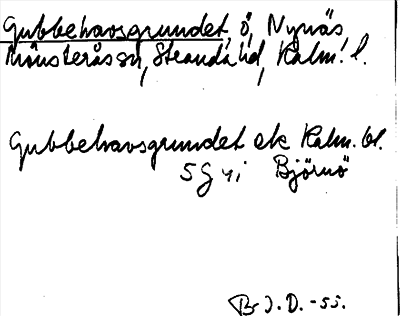 Gubbehavsgrundet, ö, Nynäs,
Mönsterås sn, Stranda hd, Kalm. l.
Gubbehavsgrundet ek Kalm. bl.
5 g vi Björnö
Br I.D. -55.